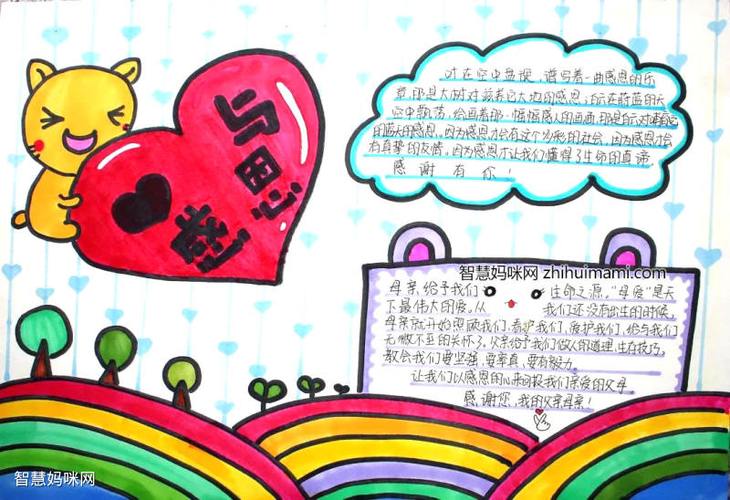 感恩与
叶在空中盘旋,谱写着一曲感恩的乐
章,那是大树对滋养它大地的感恩;白云在蔚蓝的天
空中飘荡,绘画着那一幅幅感人的画面,那是白云对哺育它
的蓝天的感恩。因为感恩才会有这个多彩的社会,因为感恩才会
有真挚的友情。因为感恩才让我们懂得了生命的真谛
感谢有你!
智慧妈咪网 zhihuimami.com
母亲给予我们生命之源,"母爱"是天
下最伟大的爱。从我们还没有出生的时候,
母亲就开始照顾我们,看护我们,爱护我们,给与我们
无微不至的关怀了。父亲给予我们做人的道理,生存技巧,
教会我们要坚强,要率真,要有毅力。
让我们以感恩的心来回报我们亲爱的父母
感谢您,我的父亲母亲!
智慧妈咪网